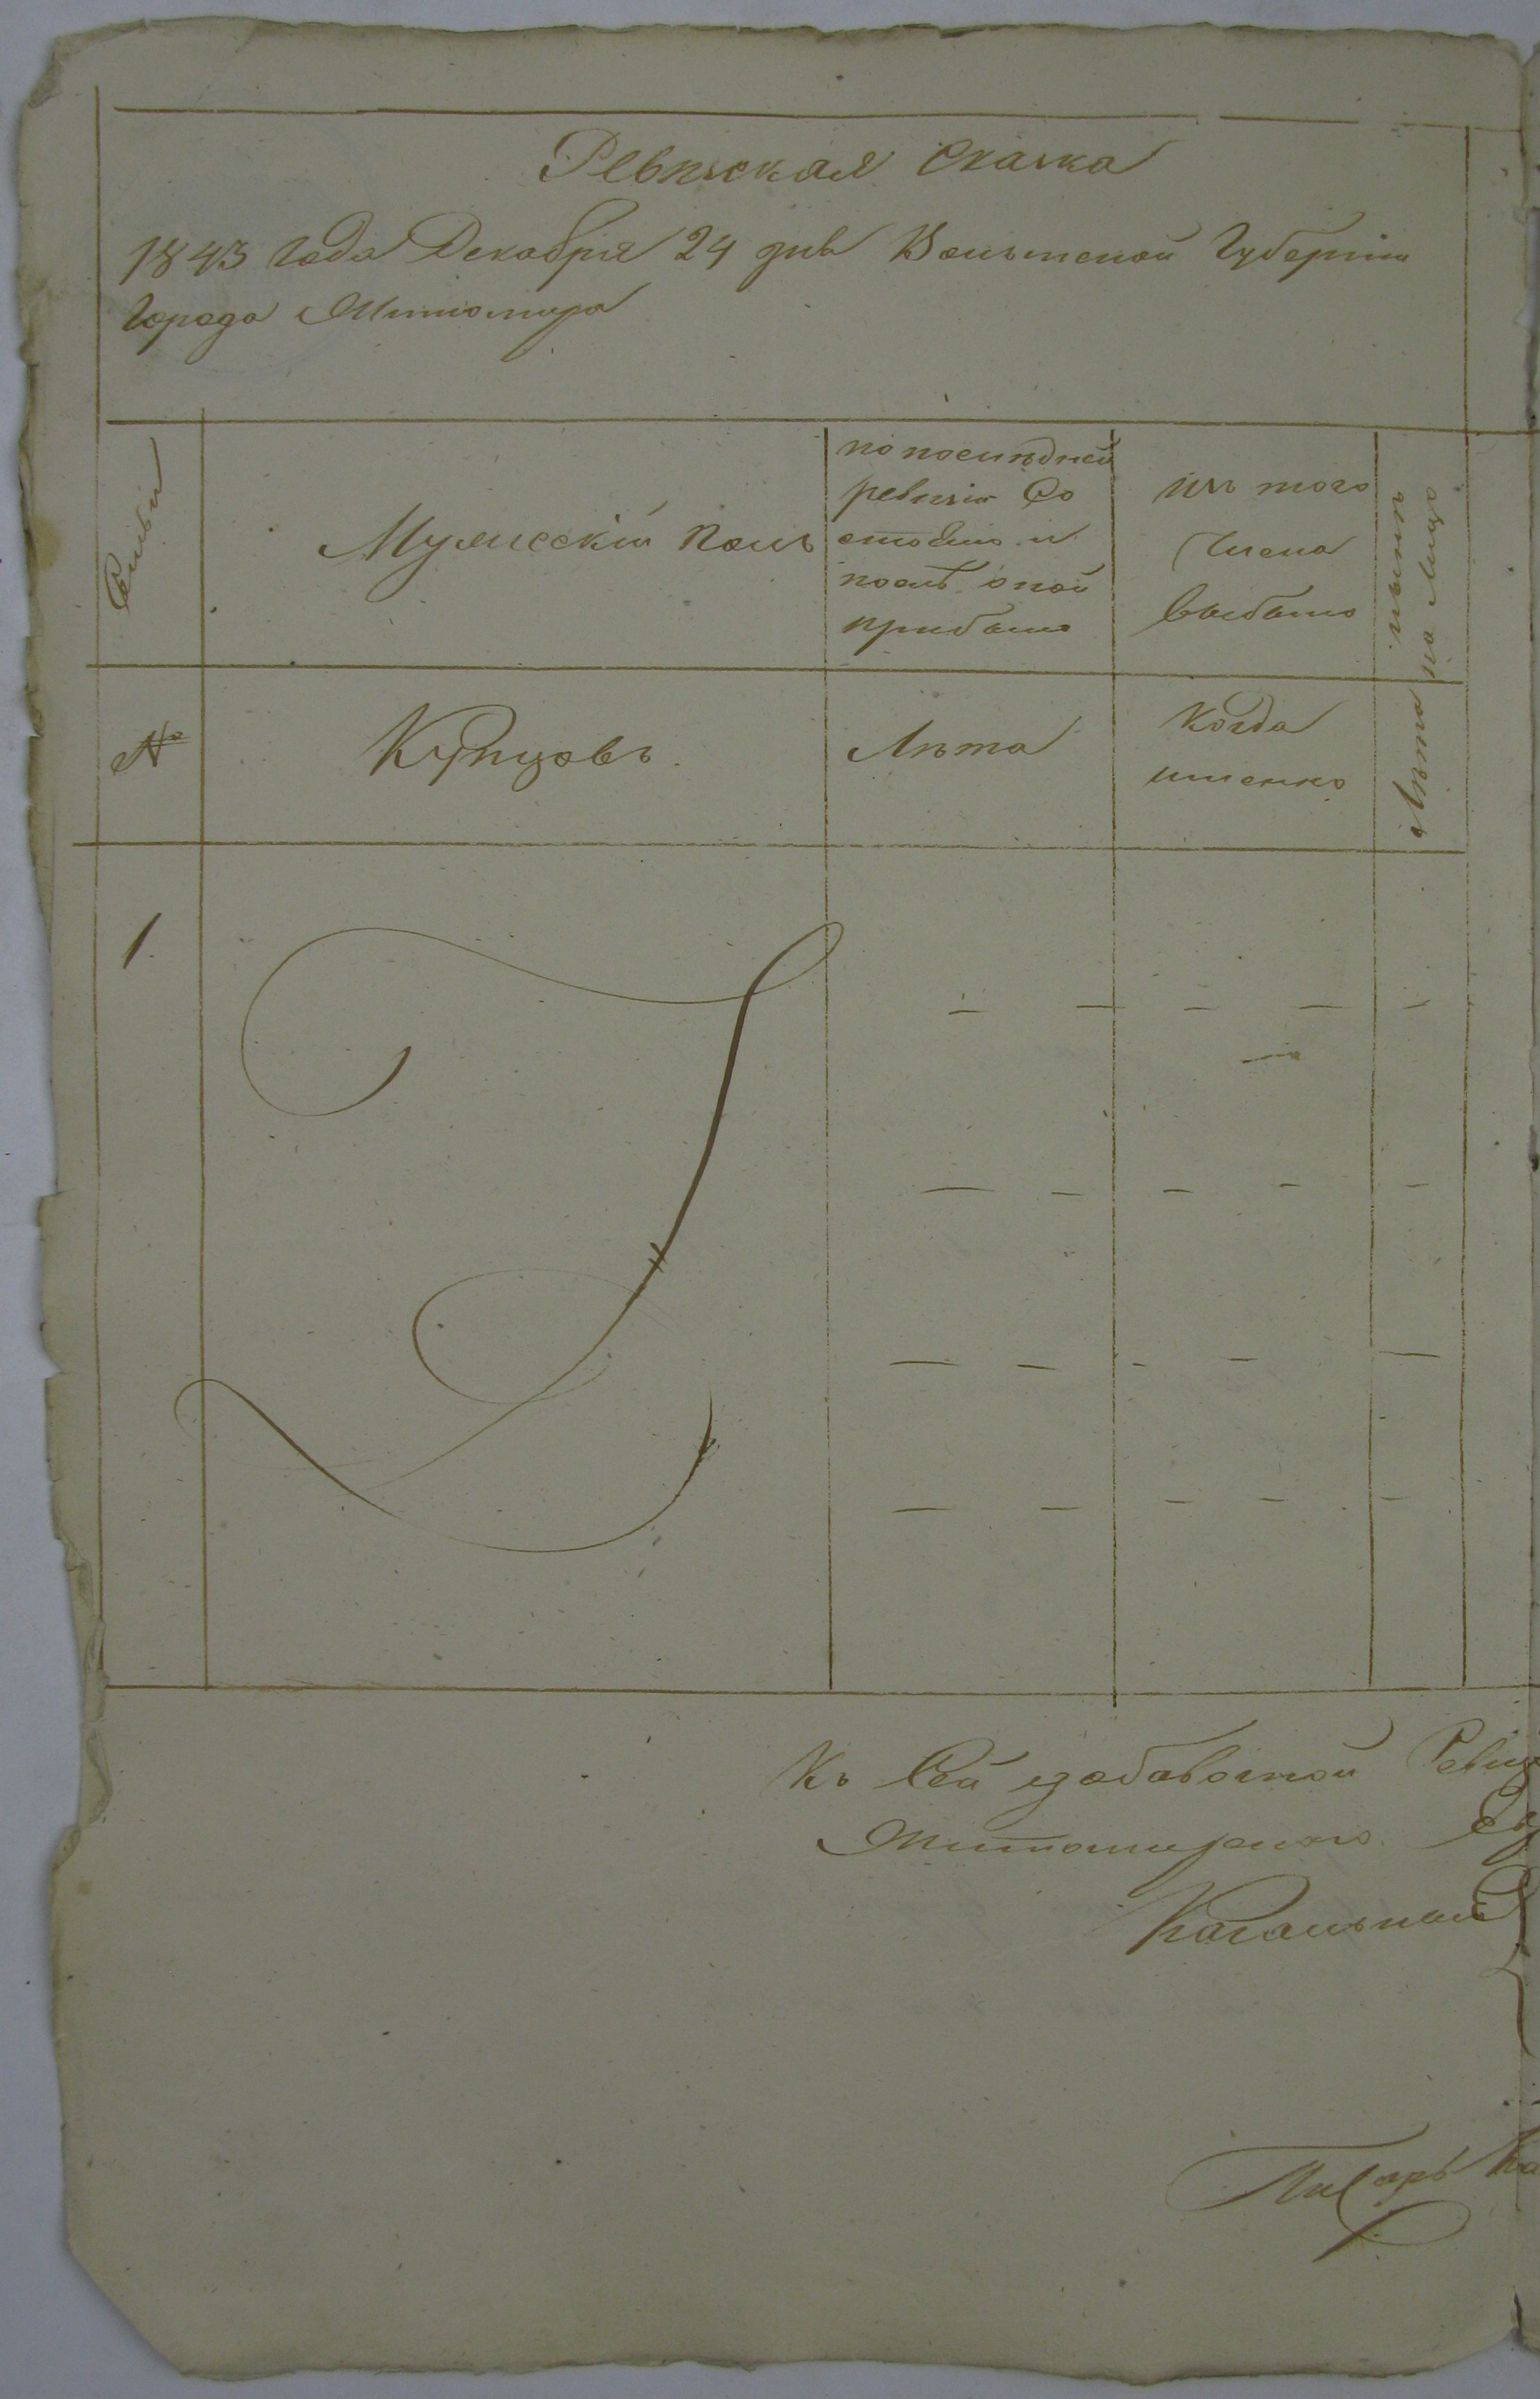 Ревизская Сказка
1843 года Декабря 24 дня Волынской Губерніи
Города Житомира
Семьи
Мужескій полъ
по последней
ревизіи Со
стояло и
послѣ оной
прибыло
изъ того
Числа
выбыло
нынѣ
на Лицо
№
Купцовъ
Лѣта
Когда
именно
Лѣта
1.
Къ Сей добавочной Ревиз
Житомирскаго Ев
Кагальный
Писарь Ка